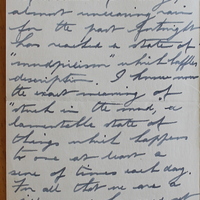 almost unceasing rain
for the past fortnight
has reached a state of
"mudpidism" which baffles
description. I know now
the exact meaning of
"stuck in the mud," a
lamentable state of
things which happens
to one at least a
score of times each day.
For all that we are a